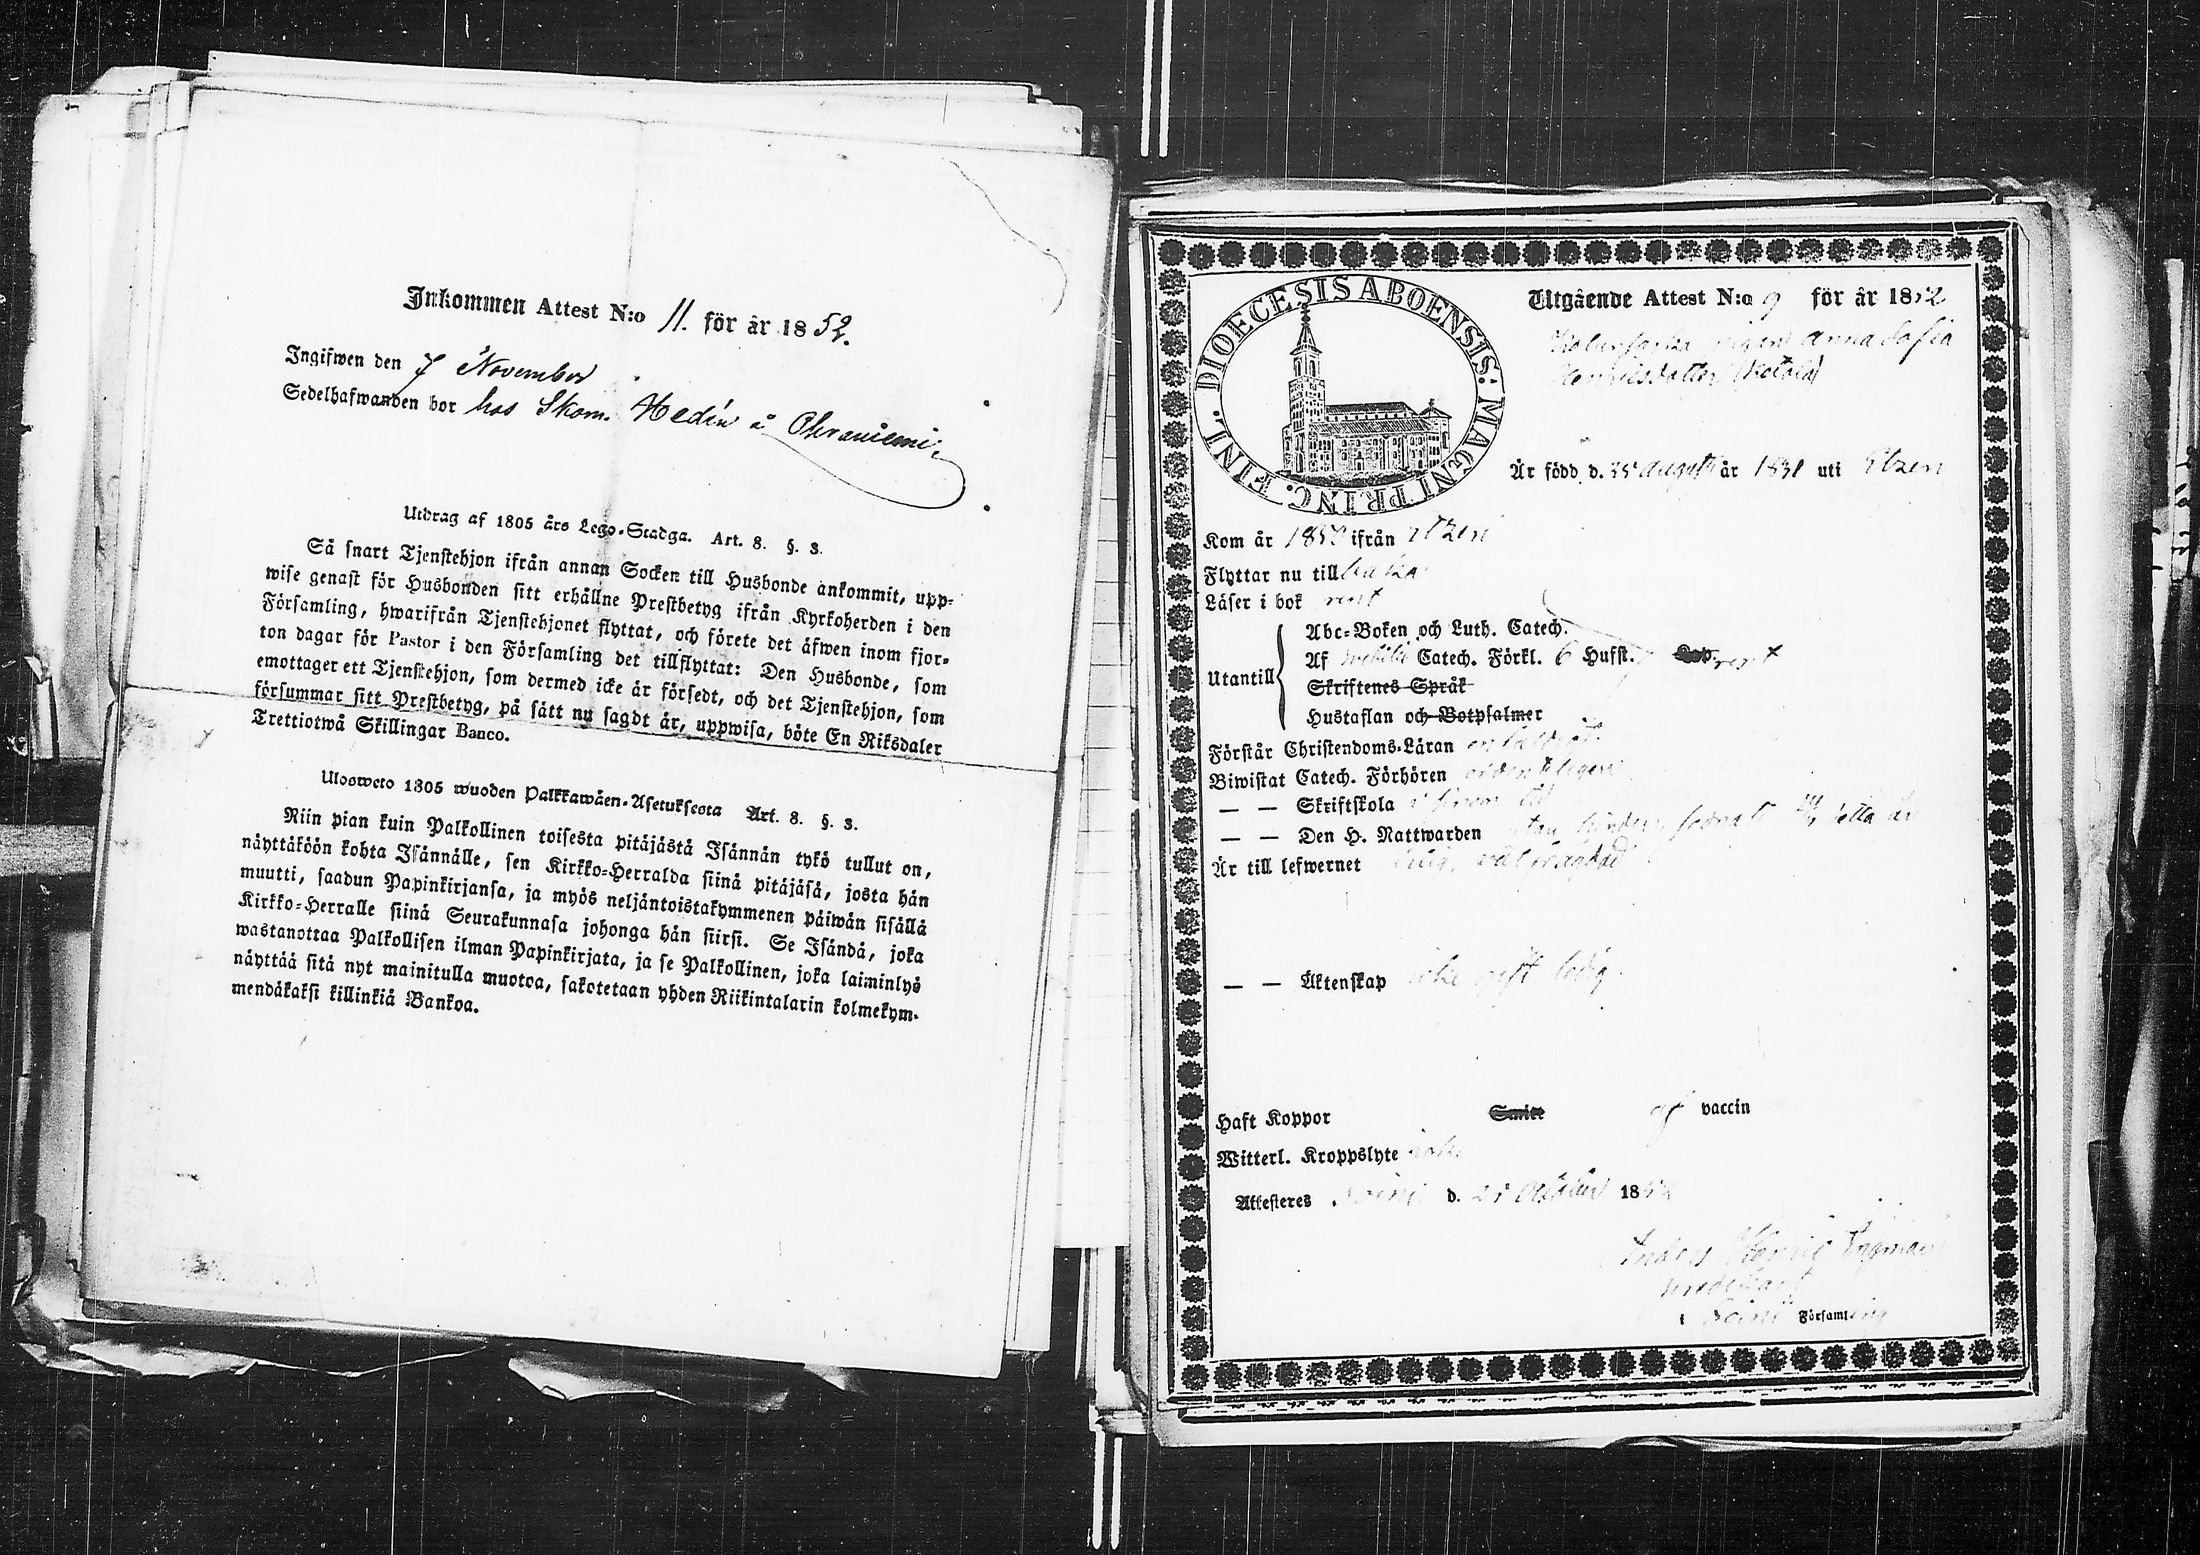 Inkommen Attest N:o 11. för år 1852.
Ingifwen den 7 November
Sedelhafwanden bor hos Skom. Hedén å Ohraniemi.
Utdrag af 1805 års Lego-Stadga. Art. 8. §. 3.
Så snart Tjenstehjon ifrån annan Socken till Husbonde ankommit, upp-
wise genast för Husbonden sitt erhållne Prestbetyg ifrån Kyrkoherden i den
Församling, hwarifrån Tjenstehjonet flyttat, och förete det äfwen inom fjor-
ton dagar för Pastor i den Församling det tillflyttat: Den Husbonde, som
emottager ett Tjenstehjon, som dermed icke är försedt, och det Tjenstehjon, som
försummar sitt Prestbetyg, på sätt nu sagdt är, uppwisa, böte En Riksdaler
Trettiotwå Skillingar Banco.
Ulosweto 1805 wuoden Palkkawäen-Asetuksesta Art. 8. §. 3.
Niin pian kuin Palkollinen toisesta pitäjästä Isännän tykö tullut on,
näyttäköön kohta Isännälle, sen Kirkko-Herralda siinä pitäjäsä, josta hän
muutti, saadun Papinkirjansa, ja myös neljäntoistakymmenen päiwän sisällä
Kirkko-Herralle siinä Seurakunnasa johonga hän siirsi. Se Isändä, joka
wastanottaa Palkollisen ilman Papinkirjata, ja se Palkollinen, joka laiminlyö
näyttää sitä nyt mainitulla muotoa, sakotetaan yhden Riikintalarin kolmekym-
mendäkaksi killinkiä Bankoa.
DIOECESIS ABOENSIS: MAGNI PRINC. FINL.
Utgående Attest N:o 9 för år 1852
pigan Anna Sofia
Henricsdotter (Ketola)
Är född d. 25 Augusti år 1831 uti Etzeri
Kom år 1850 ifrån Etzeri
Flyttar nu tillbaka
Läser i bok rent
Utantill
Abc-Boken och Luth. Catech.
Af Svebilii Catech. Förkl. 6 Hufst. rent
Skriftenes Språk
Hustaflan och Botpsalmer
Förstår Christendoms-Läran enfaldigt
Biwistat Catech. Förhören ordentligen
— — Skriftskola
— — Den H. Nattwarden utan hinder, sednast detta år
Är till lefwernet ärlig, välfrägdad
— — Äktenskap icke gift ledig.
Haft Koppor Smitt af vaccin
Witterl. Kroppslyte icke
Attesteres Soini d. 25 October 1852
Anders Henric Ingman
Predikant
i Soini Församling